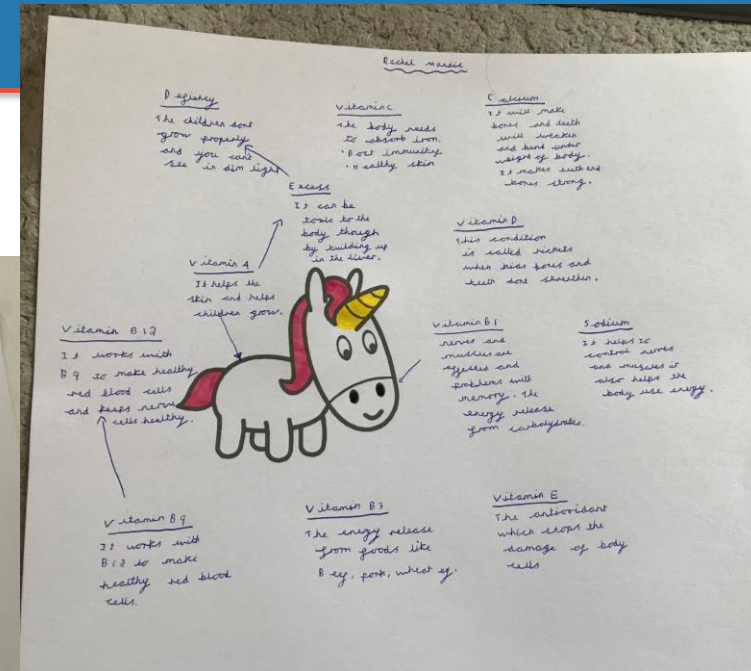 Rachel
Defiency
The children dont
grow properly
and you cant
see in dim light
Vitamin C
The body needs
to absorb iron.
• Boct immunity
• Healthy skin
Calcium
It will make
bones and teeth
will weaken
and bend under
weight of body.
It makes teeth and
bones strong.
Excess
It can be
toxic to the
body though
by building up
in the liver.
Vitamin D
This condition
is called rickets
when kids bones and
teeth dont strengthen.
Vitamin A
It helps the
skin and helps
children grow.
Vitamin B12
It works with
B9 to make healthy
red blood cells
and keeps nerve
cells healthy.
Vitamin B1
nerves and
muscles are
affected and
problems with
memory. The
energy release
from carbohydrates.
Sodium
It helps to
control nerves
and muscles it
also helps the
body use energy.
Vitamin B9
It works with
B12 to make
healthy red blood
cells.
Vitamin B3
The energy release
from foods like
Beef, pork, wheat eg.
Vitamin E
The antioxidant
which stops the
damage of body
cells